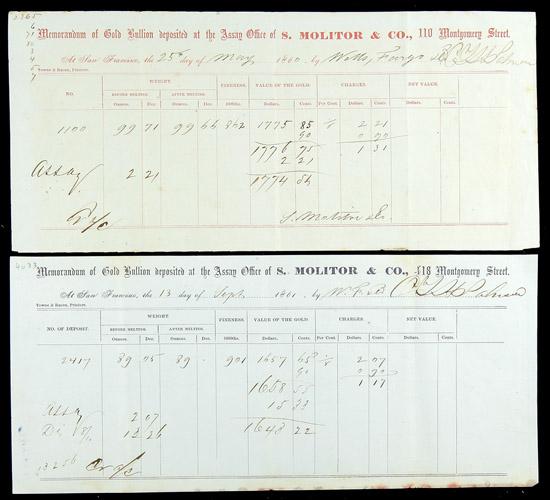 Memorandum of Gold Bullion deposited at the Assay Office of S. MOLITOR & CO., 110 Montgomery Street.
At San Francisco, the 25th day of May 1860 by Wells, Fargo &
Towne & Bacon, Printers.
NO. WEIGHT. FINENESS. VALUE OF THE GOLD. CHARGES. NET VALUE.
BEFORE MELTING. AFTER MELTING.
Ounces. Dec. Ounces. Dec. 1000ths. Dollars. Cents. Per Cent. Dollars. Cents. Dollars. Cents.
1100 99 71 99 66 862 1775 85 1/8 2 21
90 0 90
1776 75 1 31
Assay 2 21 2 21
1774 54
S. Molitor & Co.
Memorandum of Gold Bullion deposited at the Assay Office of S. MOLITOR & CO., 418 Montgomery Street.
At San Francisco, the 13 day of Sept. 1861 by W. F. &
Towne & Bacon, Printers.
NO. OF DEPOSIT. WEIGHT. FINENESS. VALUE OF THE GOLD. CHARGES. NET VALUE.
BEFORE MELTING. AFTER MELTING.
Ounces. Dec. Ounces. Dec. 1000ths. Dollars. Cents. Per Cent. Dollars. Cents. Dollars. Cents.
2417 89 05 89 901 1657 65 1/8 2 07
90 0 90
1658 55 1 17
Assay 2 07 15 33
13 26
1643 22
13.256